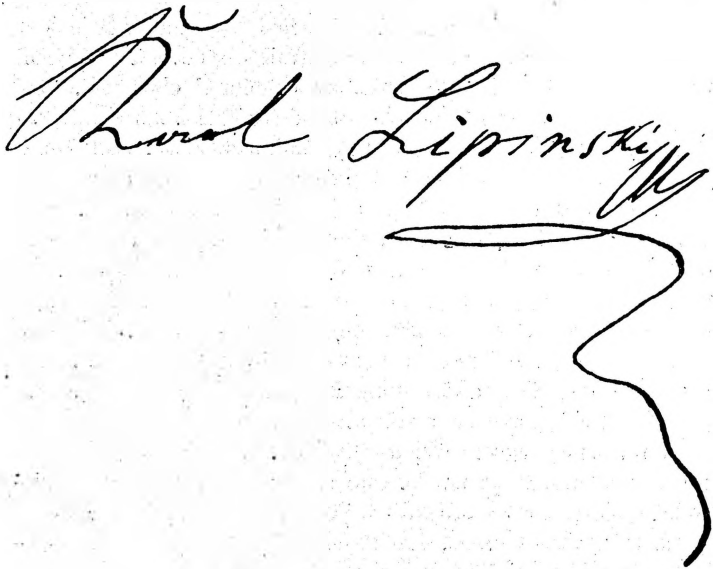 Karol Lipinski